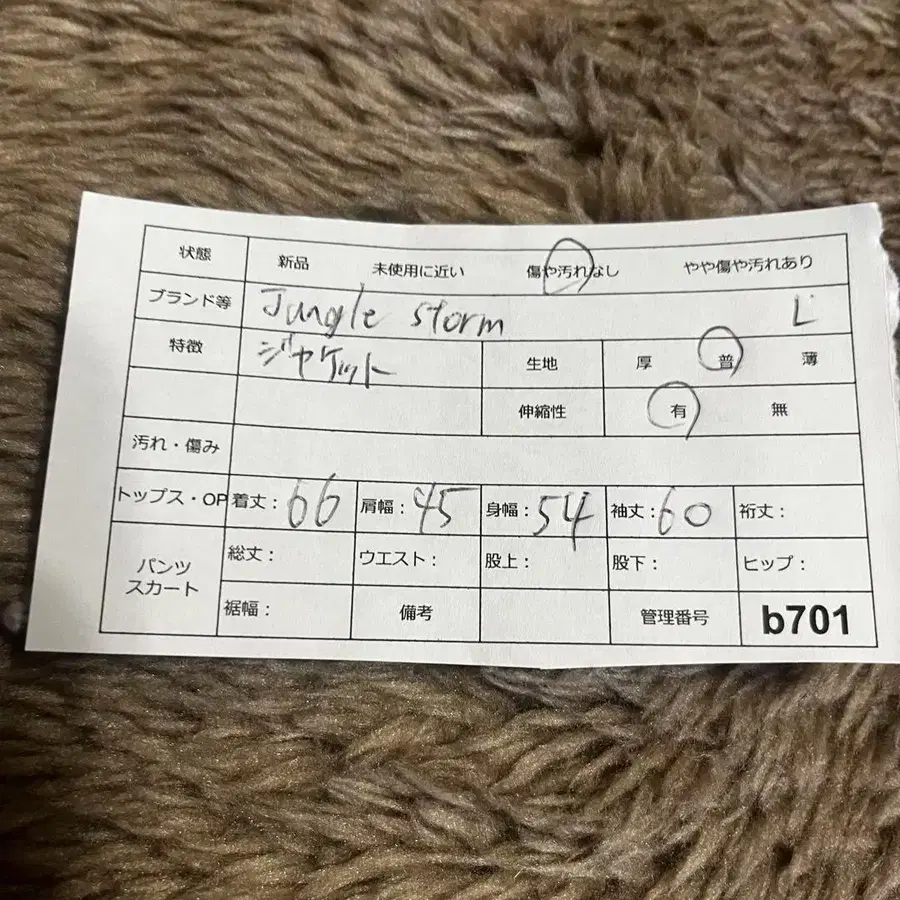 状態 新品 未使用に近い 傷や汚れなし やや傷や汚れあり
ブランド等 Jungle storm L
特徴 ジャケット 生地 厚 普 薄
伸縮性 有 無
汚れ・傷み
トップス・OP 着丈： 66 肩幅： 45 身幅： 54 袖丈： 60 裄丈：
パンツ スカート 総丈： ウエスト： 股上： 股下： ヒップ：
裾幅： 備考 管理番号 b701